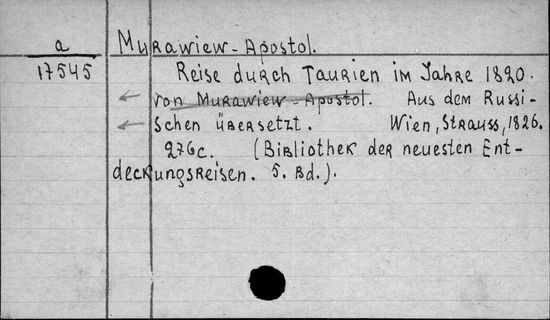 a Murawiew-Apostol.
17545 Reise durch Taurien im Jahre 1820.
← von Murawiew-Apostol. Aus dem Russi-
← schen übersetzt. Wien, Strauss, 1826.
276c. (Bibliothek der neuesten Ent-
deckungsreisen. 5. Bd.).